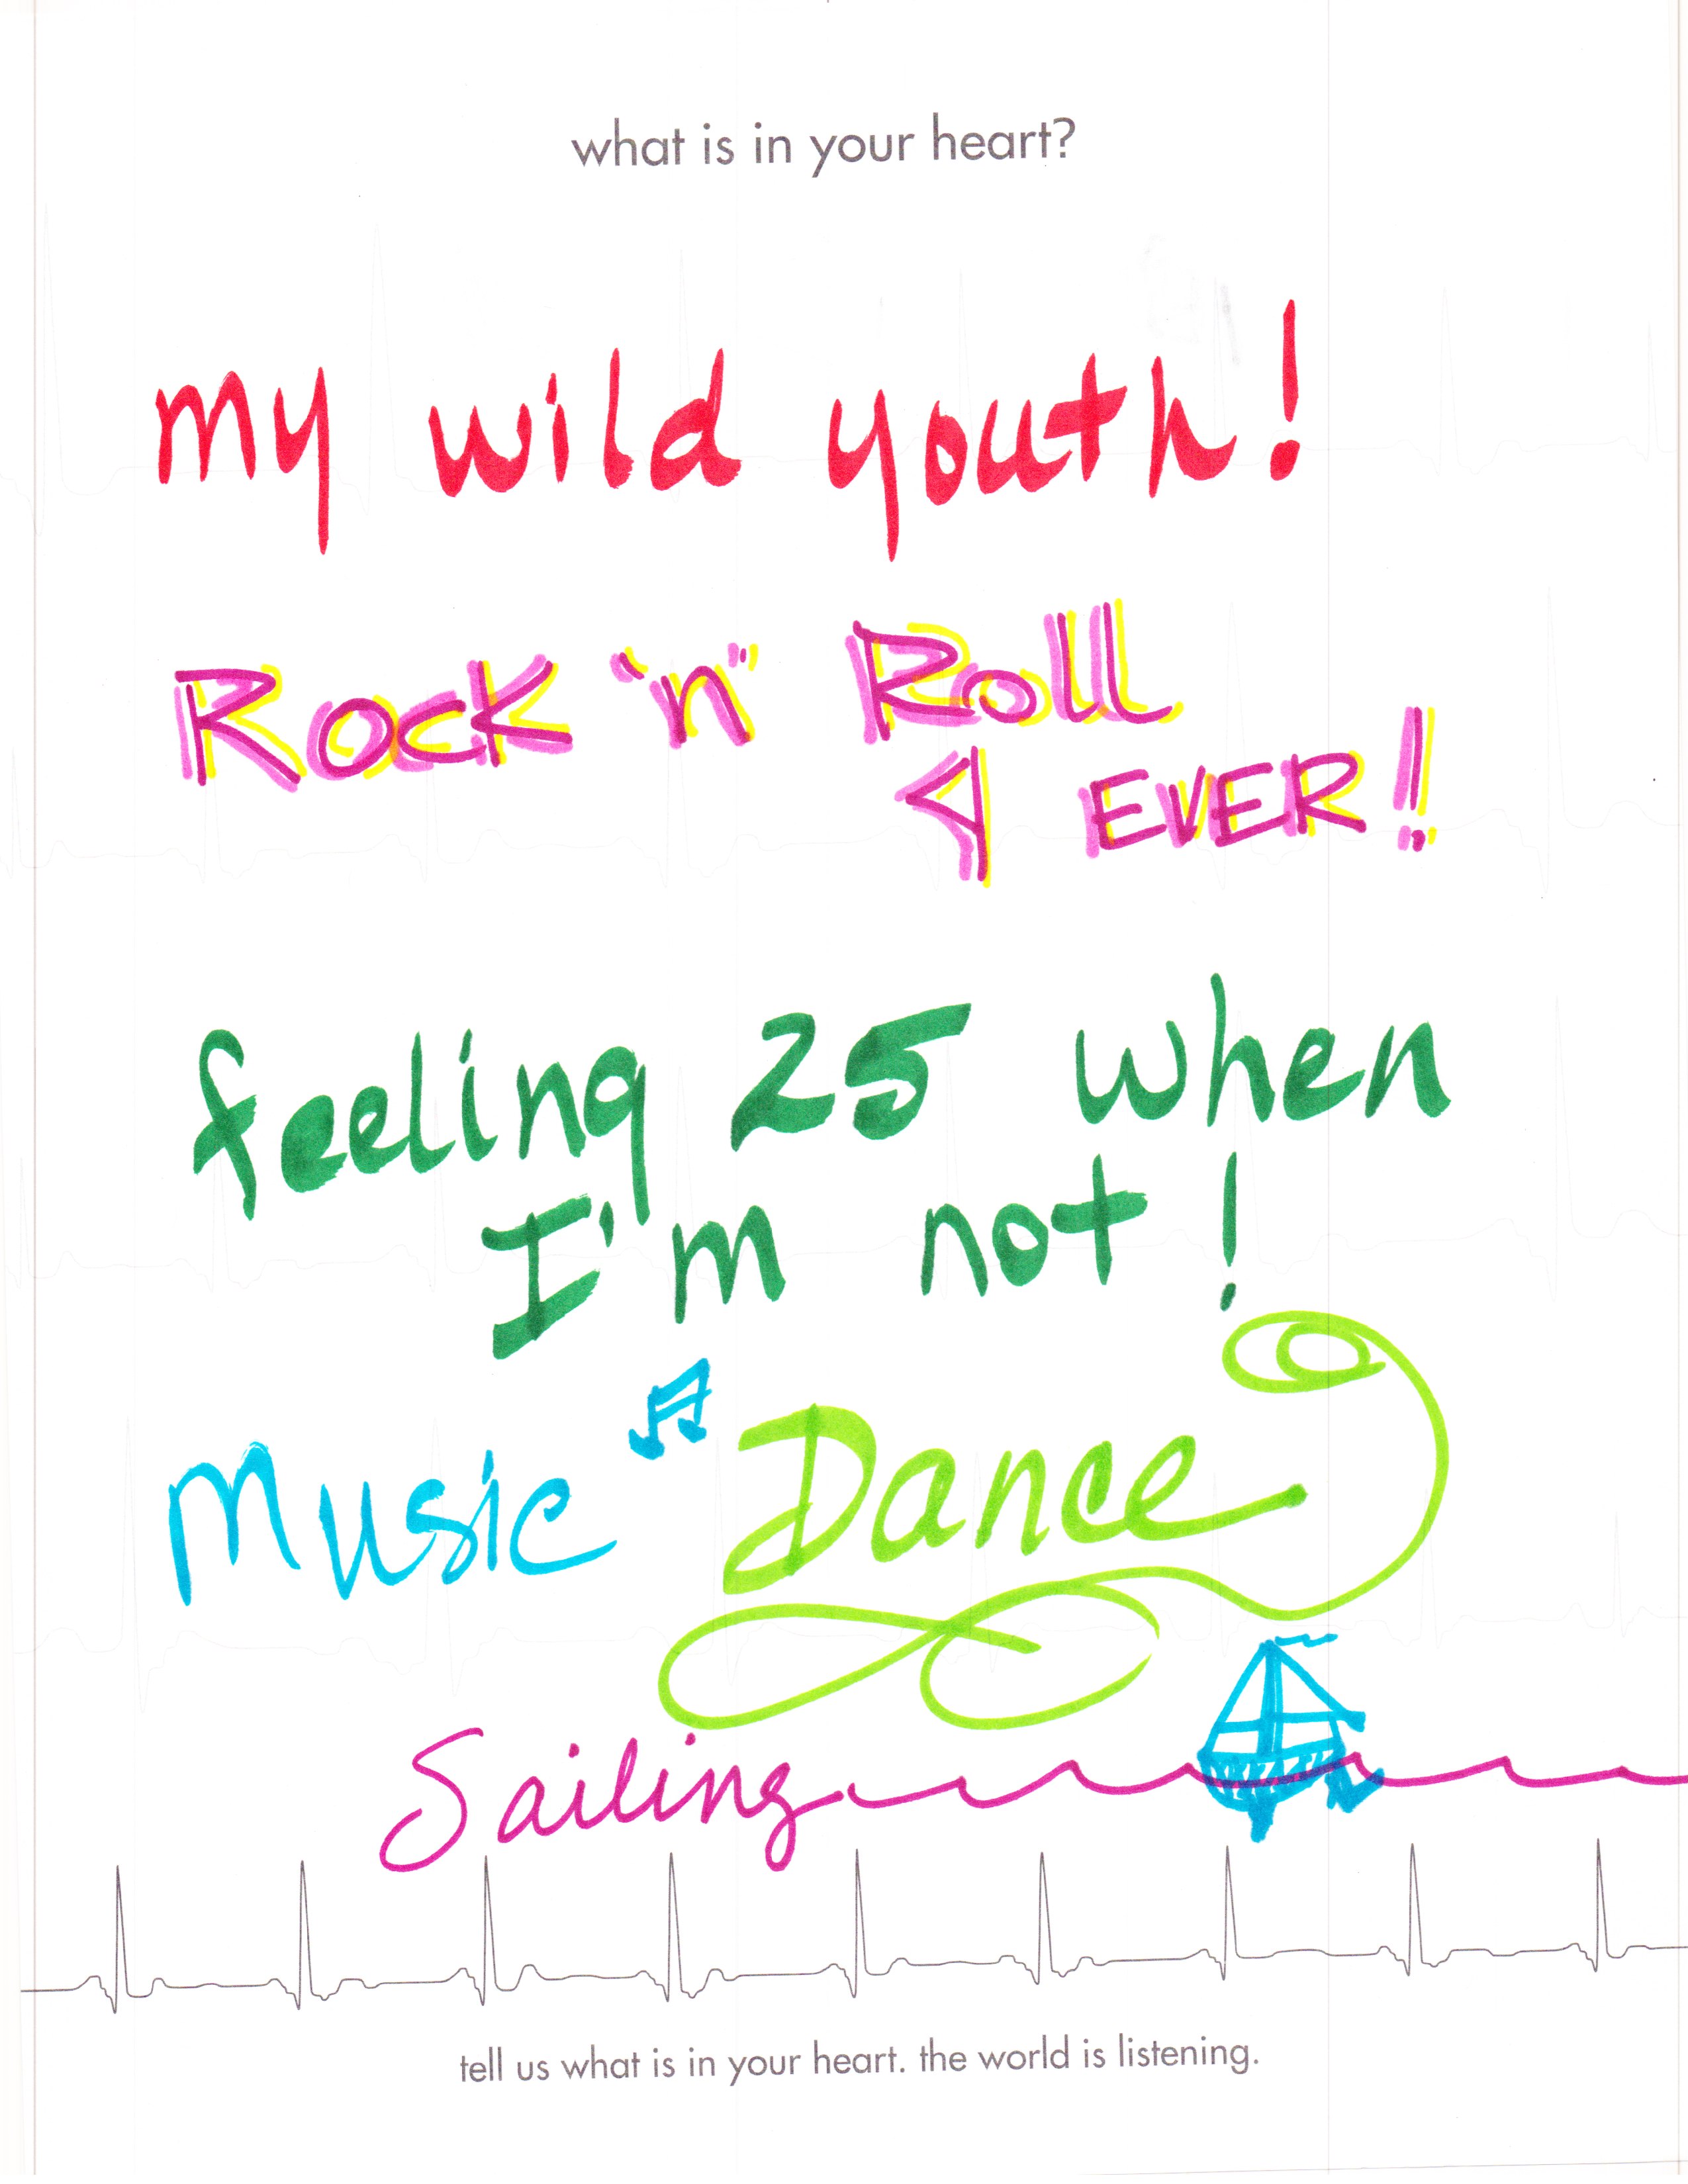 what is in your heart?
my wild youth!
Rock "n" Roll
4 EVER!!
feeling 25 when
I'm not!
Music Dance
Sailing
tell us what is in your heart. the world is listening.